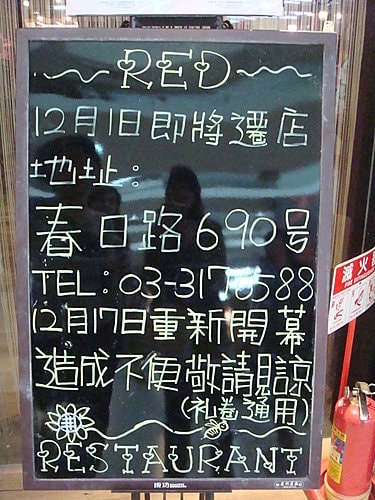 RED
12月1日即將遷店
地址：
春日路690號
TEL：03-3176588
12月17日重新開幕
造成不便敬請見諒
(礼卷通用)
RESTAURANT
滅火